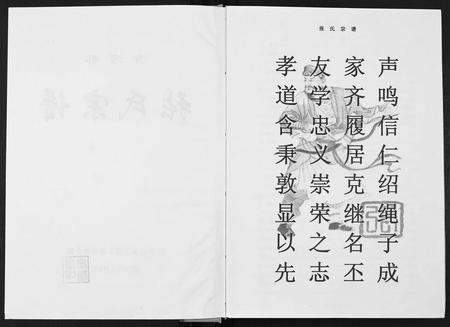 张氏宗谱
孝友家声
道学齐鸣
含忠履信
秉义居仁
敦崇克绍
显荣继绳
以之名子
先志丕成